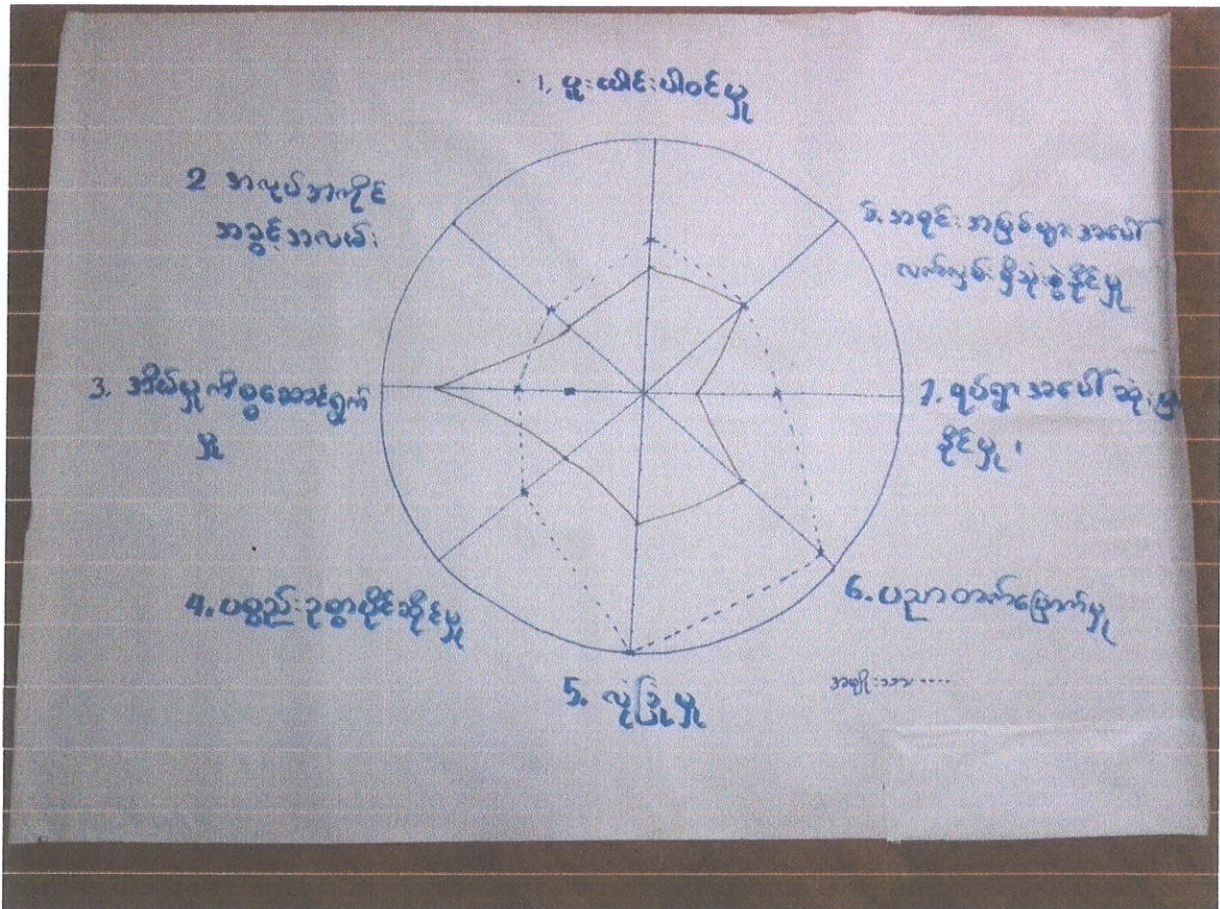 1, ပူးပေါင်းပါဝင်မှု
2 အလုပ်အကိုင်
အခွင့်အလမ်း
3. အိမ်မှုကိစ္စဆောင်ရွက်
မှု
4. ပစ္စည်းဥစ္စာပိုင်ဆိုင်မှု
5. လုံခြုံမှု
6. ပညာတတ်မြောက်မှု
7. ရပ်ရွာအပေါ်
နိုင်မှု
အရင်းအမြစ်များအပေါ်
လက်လှမ်းမှီသုံးစွဲနိုင်မှု
အမျိုးသား ....